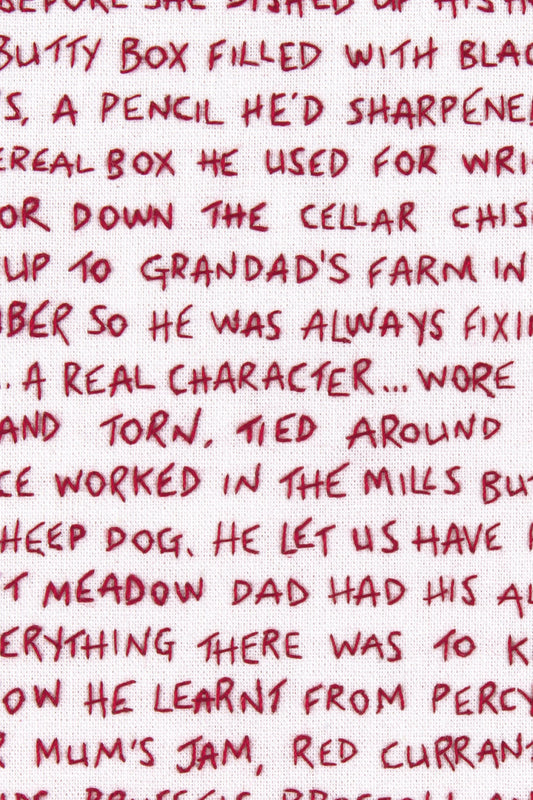 BEFORE SHE DISHED UP HIS
BUTTY BOX FILLED WITH BLAC
'S, A PENCIL HE'D SHARPENE
EREAL BOX HE USED FOR WRI
OR DOWN THE CELLAR CHIS
UP TO GRANDAD'S FARM IN
BER SO HE WAS ALWAYS FIXI
.. A REAL CHARACTER... WORE
AND TORN. TIED AROUND
CE WORKED IN THE MILLS BU
HEEP DOG. HE LET US HAVE
T MEADOW DAD HAD HIS AL
ERYTHING THERE WAS TO K
OW HE LEARNT FROM PERCY
R MUM'S JAM, RED CURRANT
BRUSSELS BROCCOLI AND